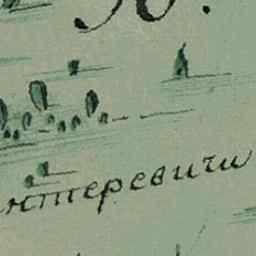 нтеревичи